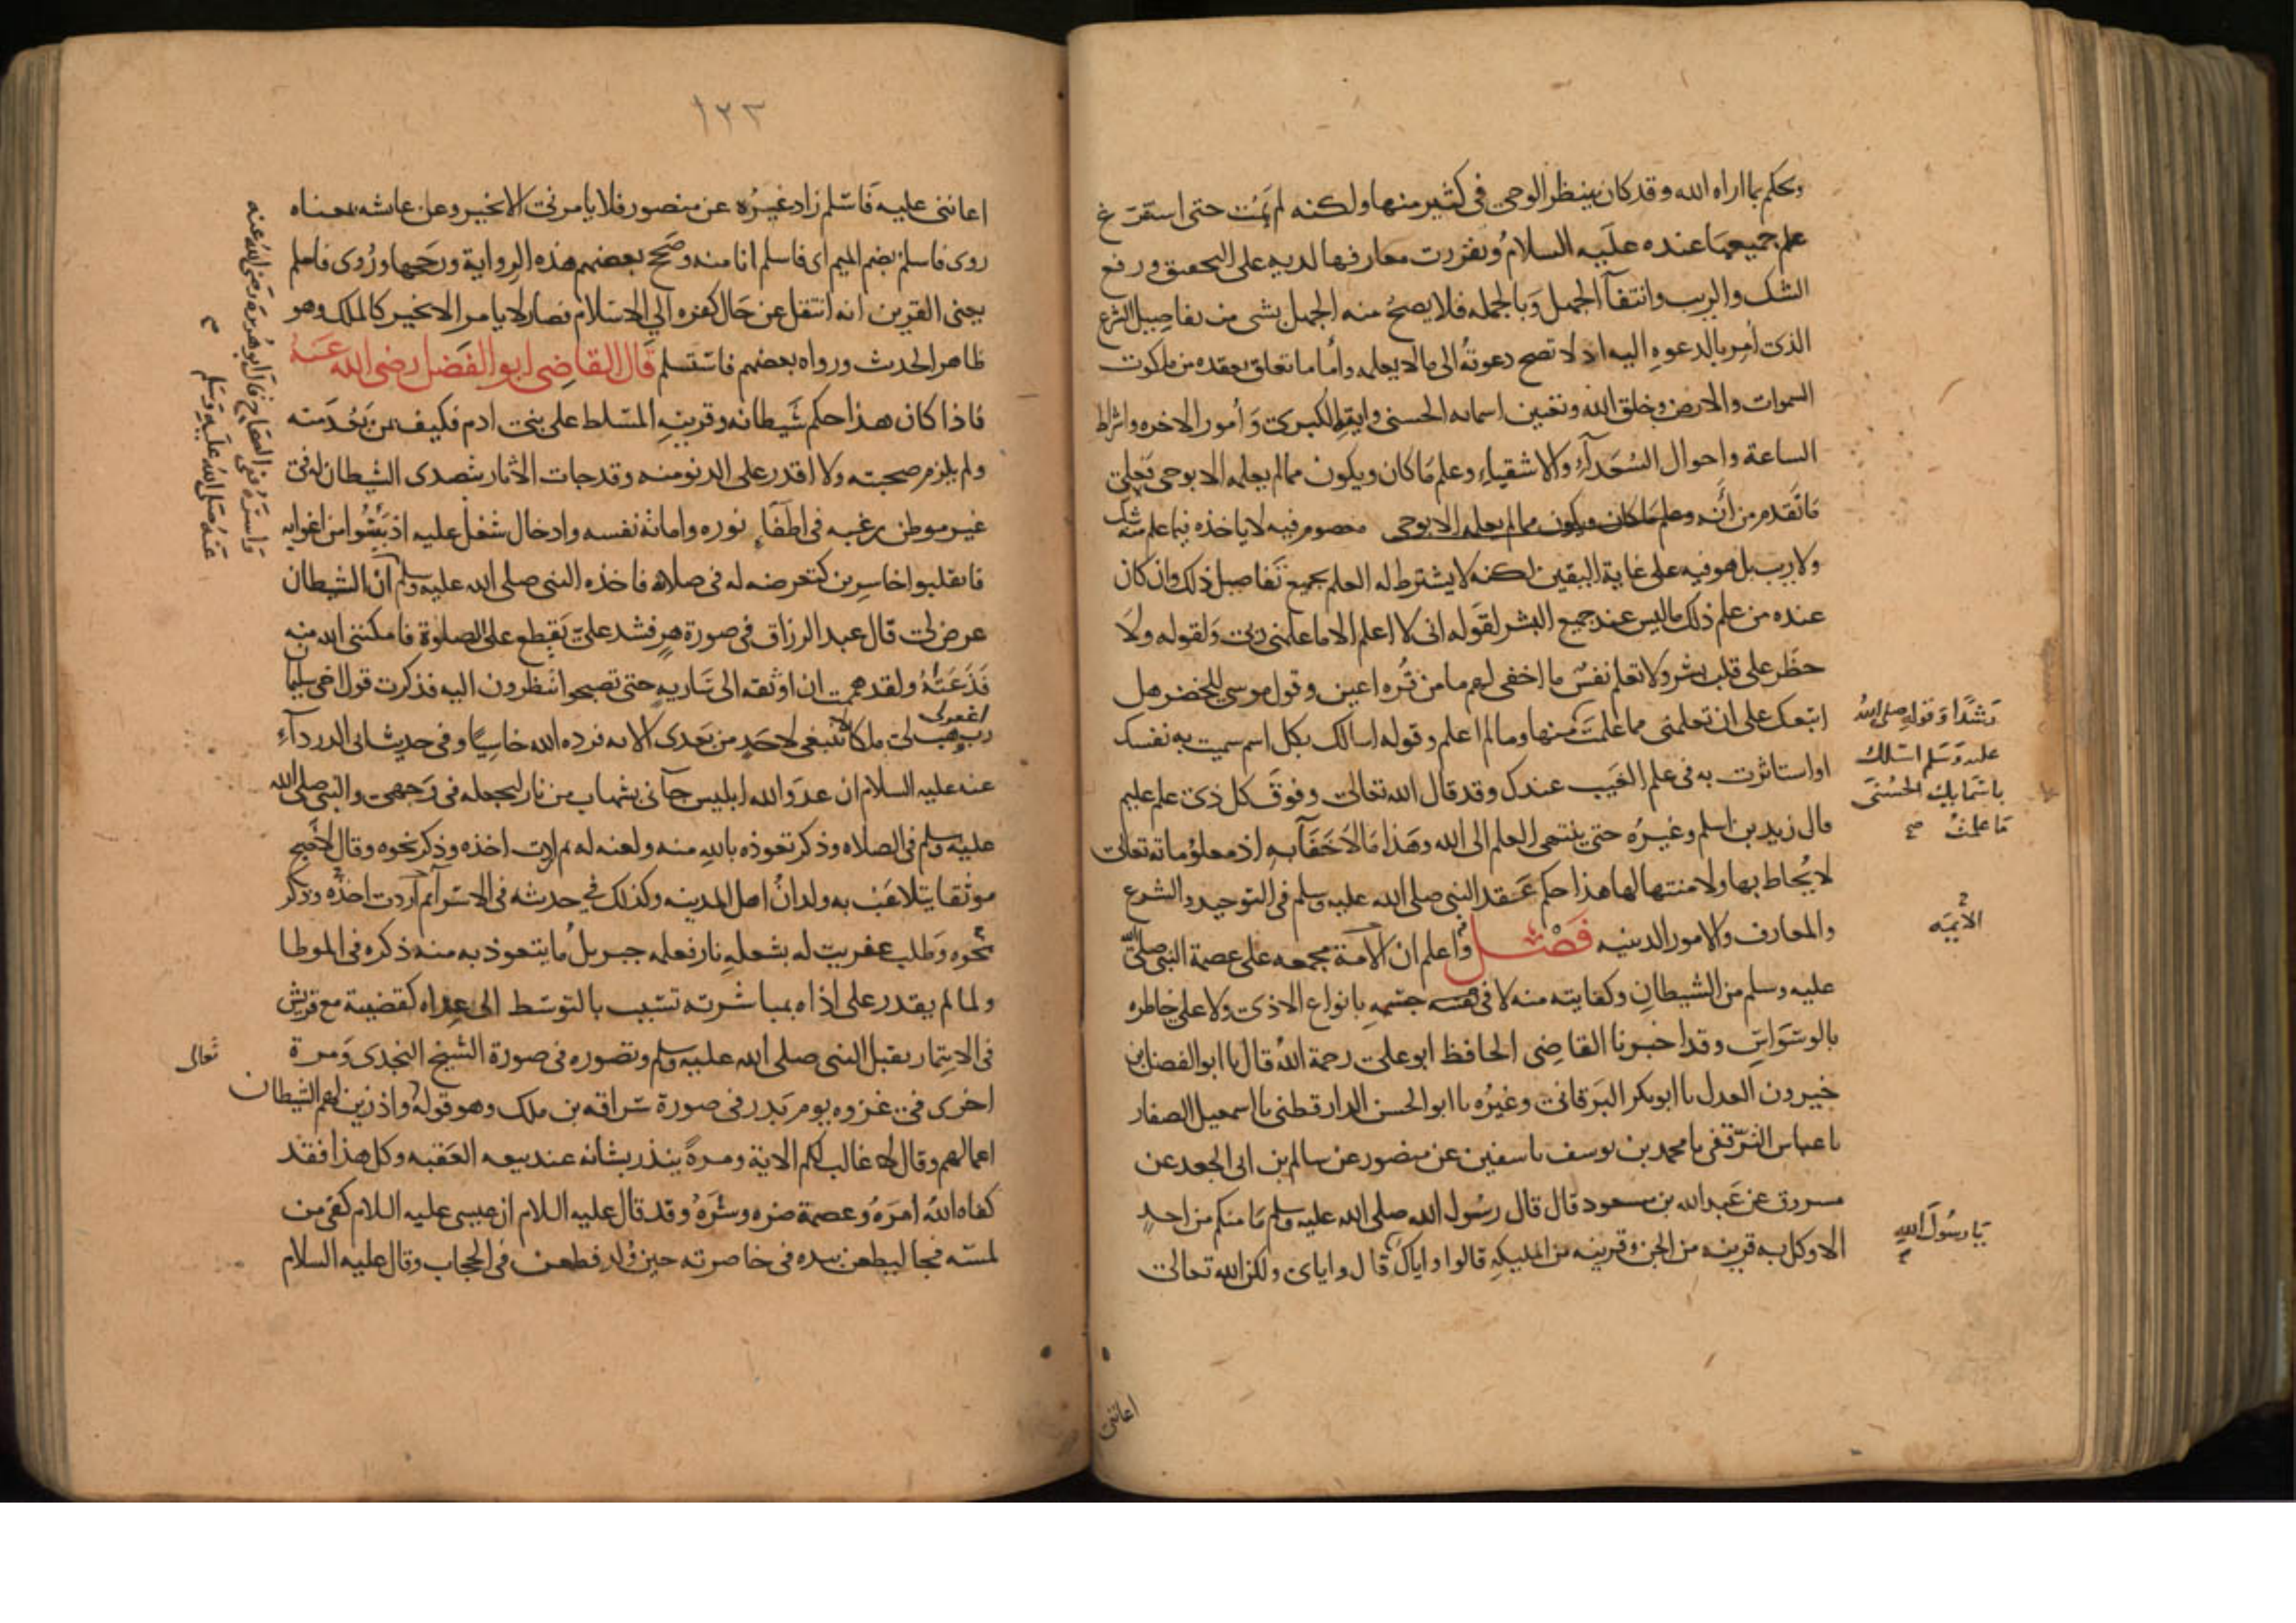 ويحكم بما اراه الله وقد كان ينتظر الوحي في كثير منها ولكنه لم يمت حتى استقرغ
علم جميعها عنده عليه السلام وتقررت معارفها لديه على التحقيق ورفع
الشك والريب وانتفآ الجهل وبالجمله فلا يصح منه الجهل بشى من تفاصيل الشرع
الذى أمر بالدعوه اليه اذ لا تصح دعوته الى ما لا يعلمه وأما ما تعلق بعقده من ملكوت
السموات والارض وخلق الله وتعيين اسمائه الحسنى وآيته الكبرى وأمور الاخره واشراط
الساعة واحوال السُعَدآء والاشقياء وعلم ما كان ويكون مما لم يعلمه الا بوحى فعلى
ما تقدم من أنه وعلم ما كان ويكون مما لم يعلمه الا بوحى معصوم فيه لا ياخذه فيما علم منه شك
ولا ريب بل هو فيه على غاية اليقين لكنه لا يشترط له العلم بجميع تفاصيل ذلك وان كان
عنده من علم ذلك ما ليس عند جميع البشر لقوله انى لا اعلم الا ما علمنى ربى ولقوله ولا
خطر على قلب بشر ولا تعلم نفس ما اخفى لهم ما من قره اعين وقول موسى للخضر هل
اتبعك على ان تعلمنى مما علمت منها وما لم اعلم وقوله اسالك بكل اسم سميت به نفسك
رشدًا وقوله صلى الله
عليه وسلم اسلك
باسمايك الحسنى
ما علمت صح
او استاثرت به في علم الغيب عندك وقد قال الله تعالى وفوق كل ذى علم عليم
قال زيد بن اسلم وغيره حتى ينتهى العلم الى الله وهذا مالا خفآ به اذ معلوماته تعالى
لا يُحاط بها ولا منتها لها هذا حكم عقد النبى صلى الله عليه وسلم في التوحيد والشرع
والمعارف والامور الدينيه فصل واعلم ان الامة مجمعه على عصمة النبى صلى الله
الايمه
عليه وسلم من الشيطان وكفايته منه لا فى جسمه بانواع الاذى ولا على خاطره
بالوسواس وقد اخبرنا القاضى الحافظ ابو على رحمة الله قال نا ابو الفضل بن
خيرون العدل نا ابو بكر البرقانى وغيره نا ابو الحسن الدارقطنى نا اسمعيل الصفار
نا عباس الترقفى نا محمد بن يوسف نا سفين عن منصور عن سالم بن ابى الجعد عن
مسروق عن عبد الله بن مسعود قال قال رسول الله صلى الله عليه وسلم ما منكم من احد
الا وكل به قرينه من الجن وقرينه من المليكه قالوا واياك قال واياى ولكن الله تعالى
يا رسول الله
اعاننى
١٢٣
اعاننى عليه فاسلم زاد غيره عن منصور فلا يامرنى الا بخير وعن عائشه بمعناه
روى فاسلم بضم الميم اى فاسلم انا منه وصحح بعضهم هذه الرواية ورجحها وروى فاسلم
يعنى القرين انه انتقل عن حال كفره الى الاسلام فصار لا يامر الا بخير كالملك وهو
ظاهر الحدث ورواه بعضهم فاستسلم قال القاضى ابو الفضل رضى الله عنه
فاذا كان هذا حكم شيطانه وقرينه المسلط على بنى ادم فكيف من بعد منه
ولم يلزم صحبته ولا اقدر على الدنو منه وقد جات الاثار بتصدى الشيطان له فى
غير موطن رغبه فى اطفآء نوره واماتة نفسه وادخال شغل عليه اذ يئسوا من اغوايه
فانقلبوا خاسرين كتعرضه له فى صلاته فاخذه النبى صلى الله عليه وسلم ان الشيطان
واسره ففى الصحاح قال ابو هريره رضى الله عنه
عنه صلى الله عليه وسلم
عرض لى قال عبد الرزاق فى صورة هر فشد على يقطع على الصلوة فامكننى الله منه
فذعته ولقد هممت ان اوثقه الى ساريه حتى تصبحوا تنظرون اليه فذكرت قول اخى سليما
رب اغفرلى وهب لى ملكا لا ينبغى لاحد من بعدى الايه فرده الله خاسيًا وفى حديث ابى الدردآء
عنه عليه السلام ان عدو الله ابليس جآنى بشهاب من نار ليجعله فى وجهى والنبى صلى الله
عليه وسلم فى الصلاه وذكر تعوذه بالله منه ولعنه له ثم اردت اخذه وذكر نحوه وقال لاصبح
موثقا يتلاعب به ولدان اهل المدينه وكذلك فى حديثه فى الاسرآ ثم اردت اخذه وذكر
نحوه وطلب عفريت له بشعله نار فعلمه جبريل ما يتعوذ به منه ذكره فى الموطا
ولما لم يقدر على اذاه بمباشرته تسبب بالتوسط الى عداه كقضية مع قريش
فى الايتمار بقبل النبى صلى الله عليه وسلم وتصوره فى صورة الشيخ النجدى ومرة
اخرى فى غزوه يوم بدر فى صورة سراقه بن ملك وهو قوله واذ زين لهم الشيطان
تعالى
اعمالهم وقال لا غالب لكم الاية ومرةً ينذر بشانه عند بيعه العقبه وكل هذا فقد
كفاه الله امره وعصمة ضره وشره وقد قال عليه السلام ان عيسى عليه السلام كفى من
لمسه فجا ليطعن بيده فى خاصرته حين ولد فطعن فى الحجاب وقال عليه السلام